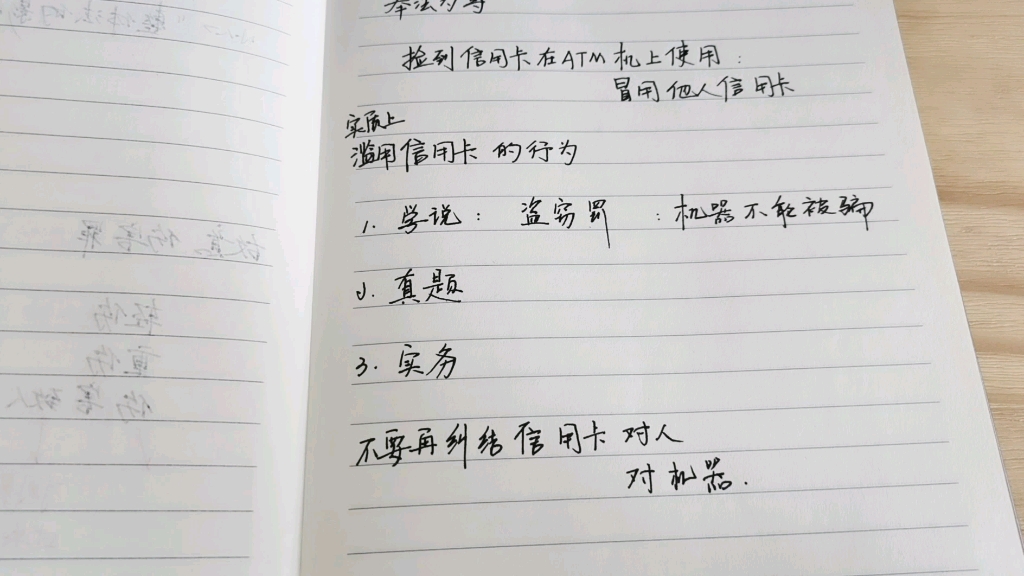 本法为等
捡到信用卡在ATM机上使用：
冒用他人信用卡
实质上
滥用信用卡的行为
1. 学说： 盗窃罪 ：机器不能被骗
2. 真题
3. 实务
不要再纠结信用卡对人
对机器.
故意伤害罪
轻伤
重伤